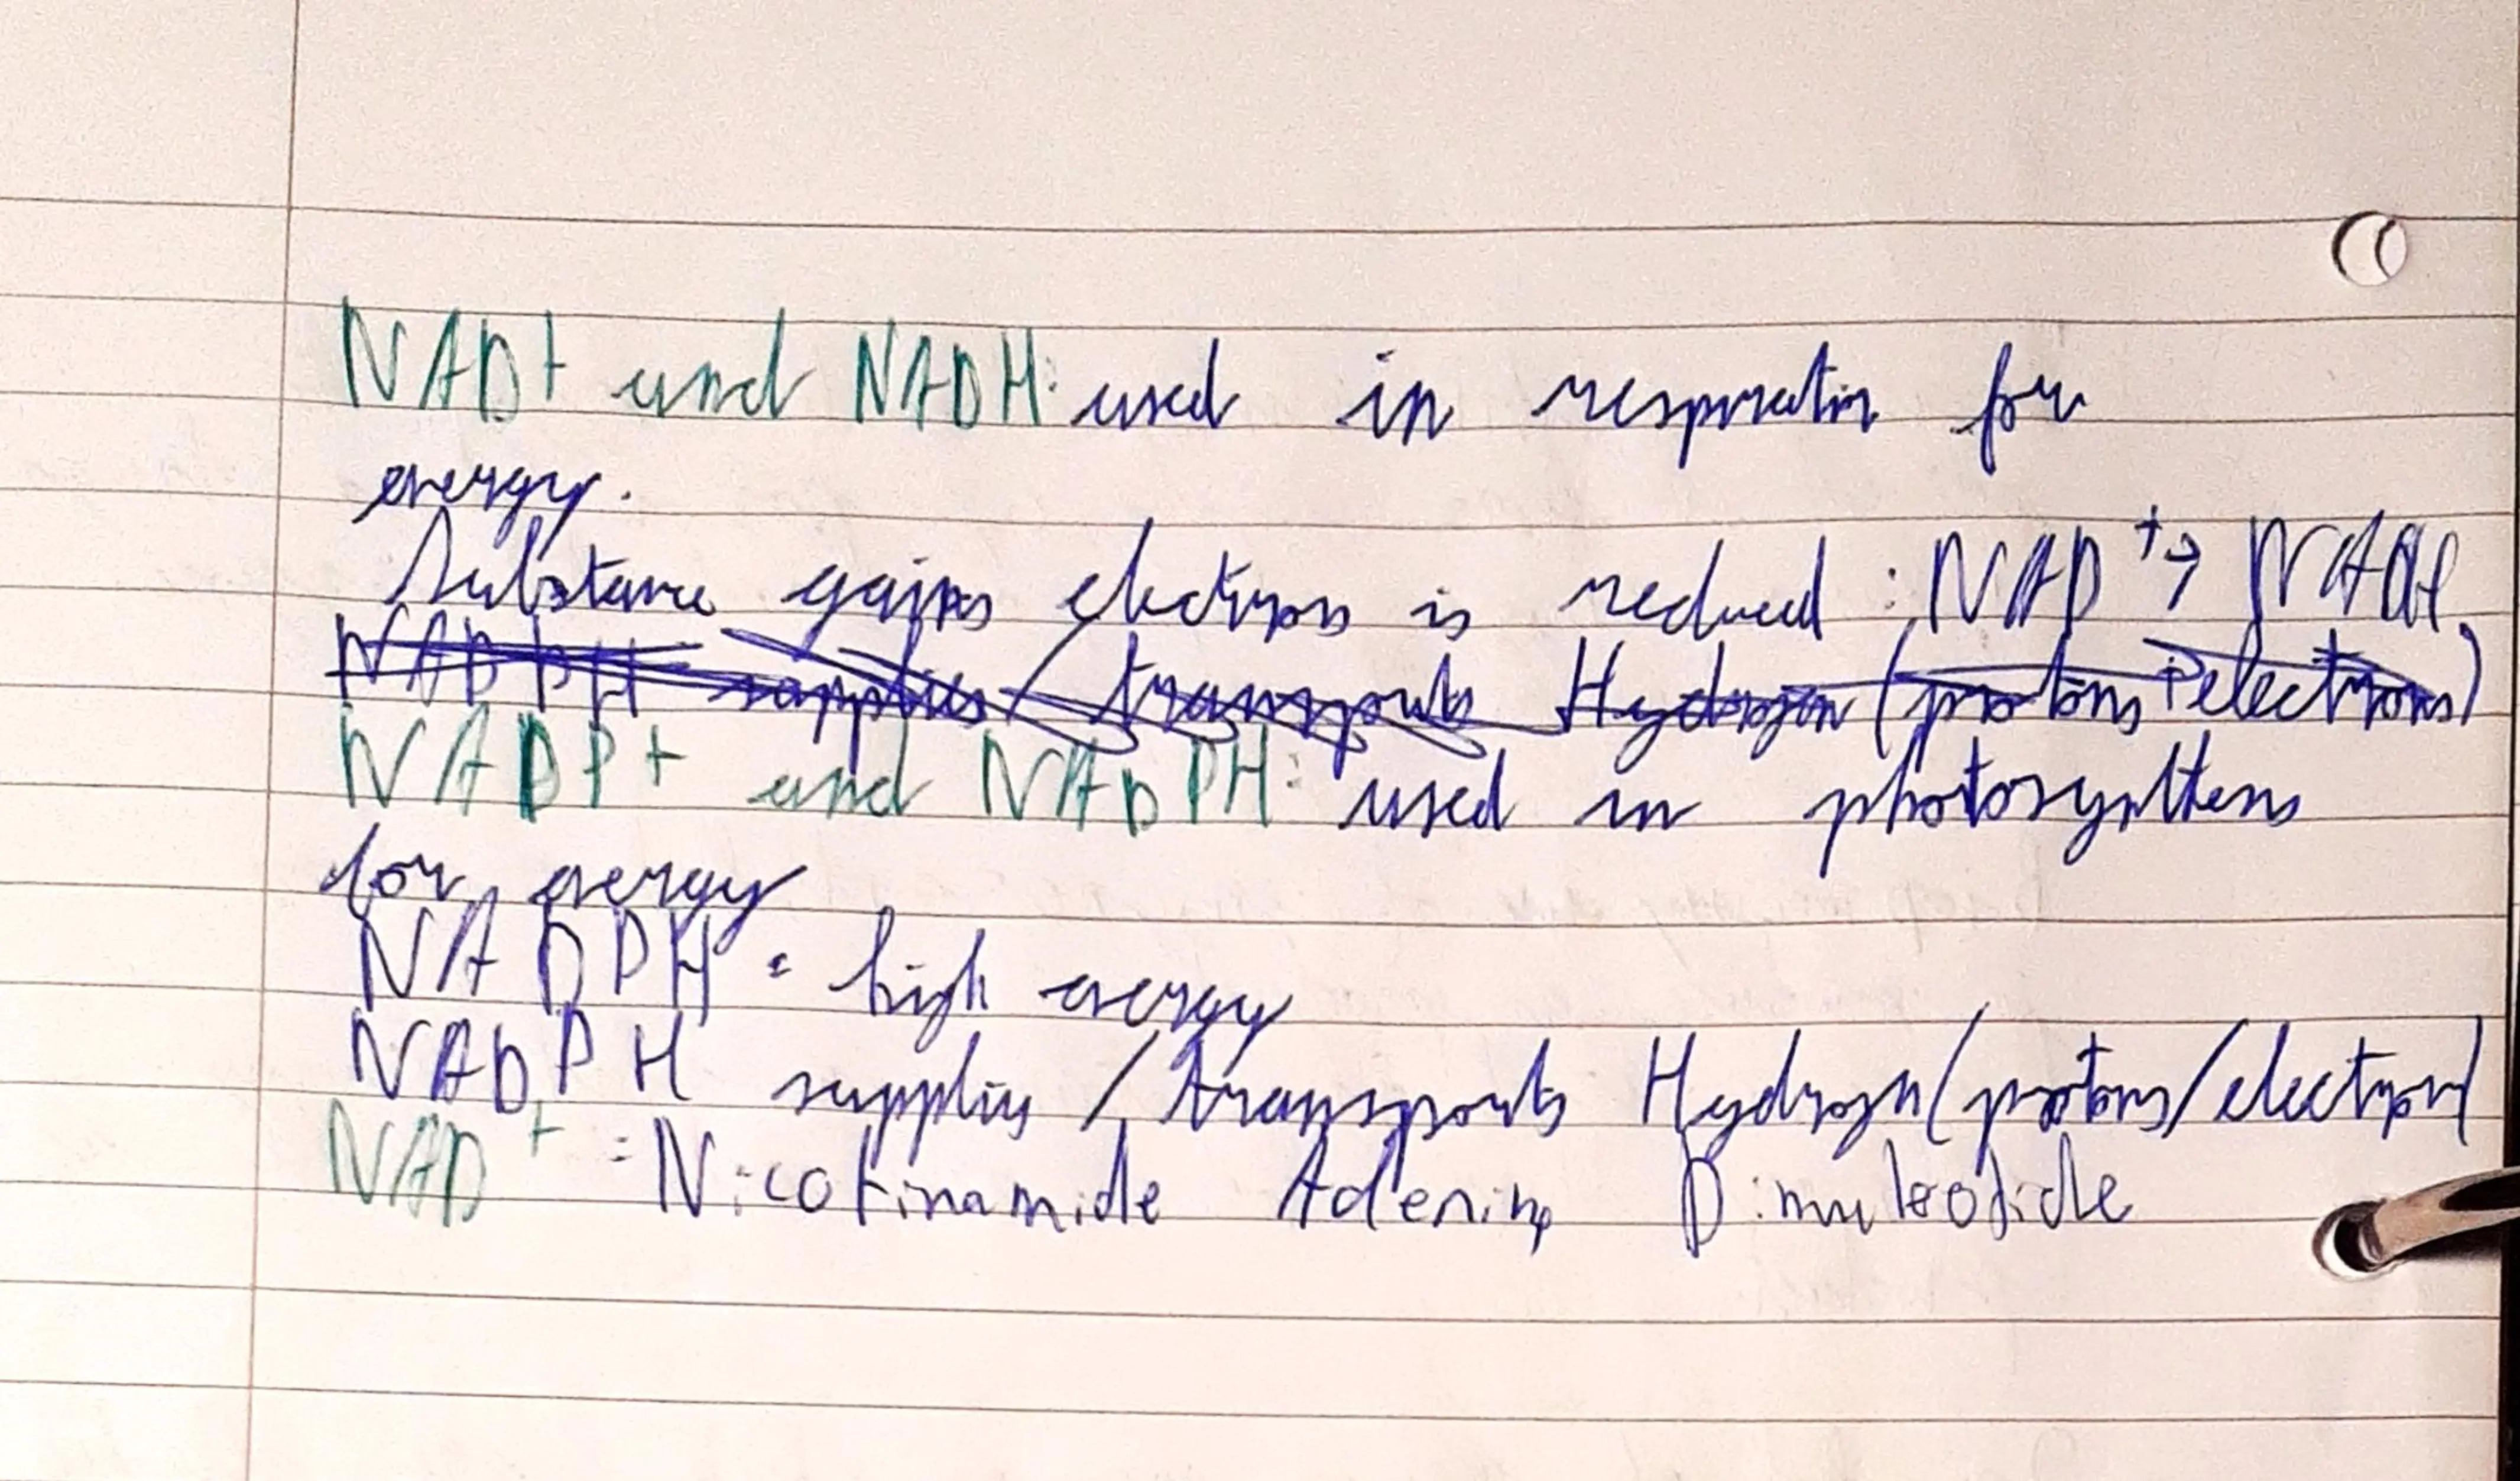 NAD+ und NADH: used in respiration for
energy.
Substance gains electrons is reduced : NAD+ → NADH
NADPH supplies / transports Hydrogen (protons + electrons)
NADP+ und NADPH: used in photosynthesis
for energy
NADPH = high energy
NADPH supplies / transports Hydrogen (protons/electron)
NAD+ = Nicotinamide Adenine Dinucleotide